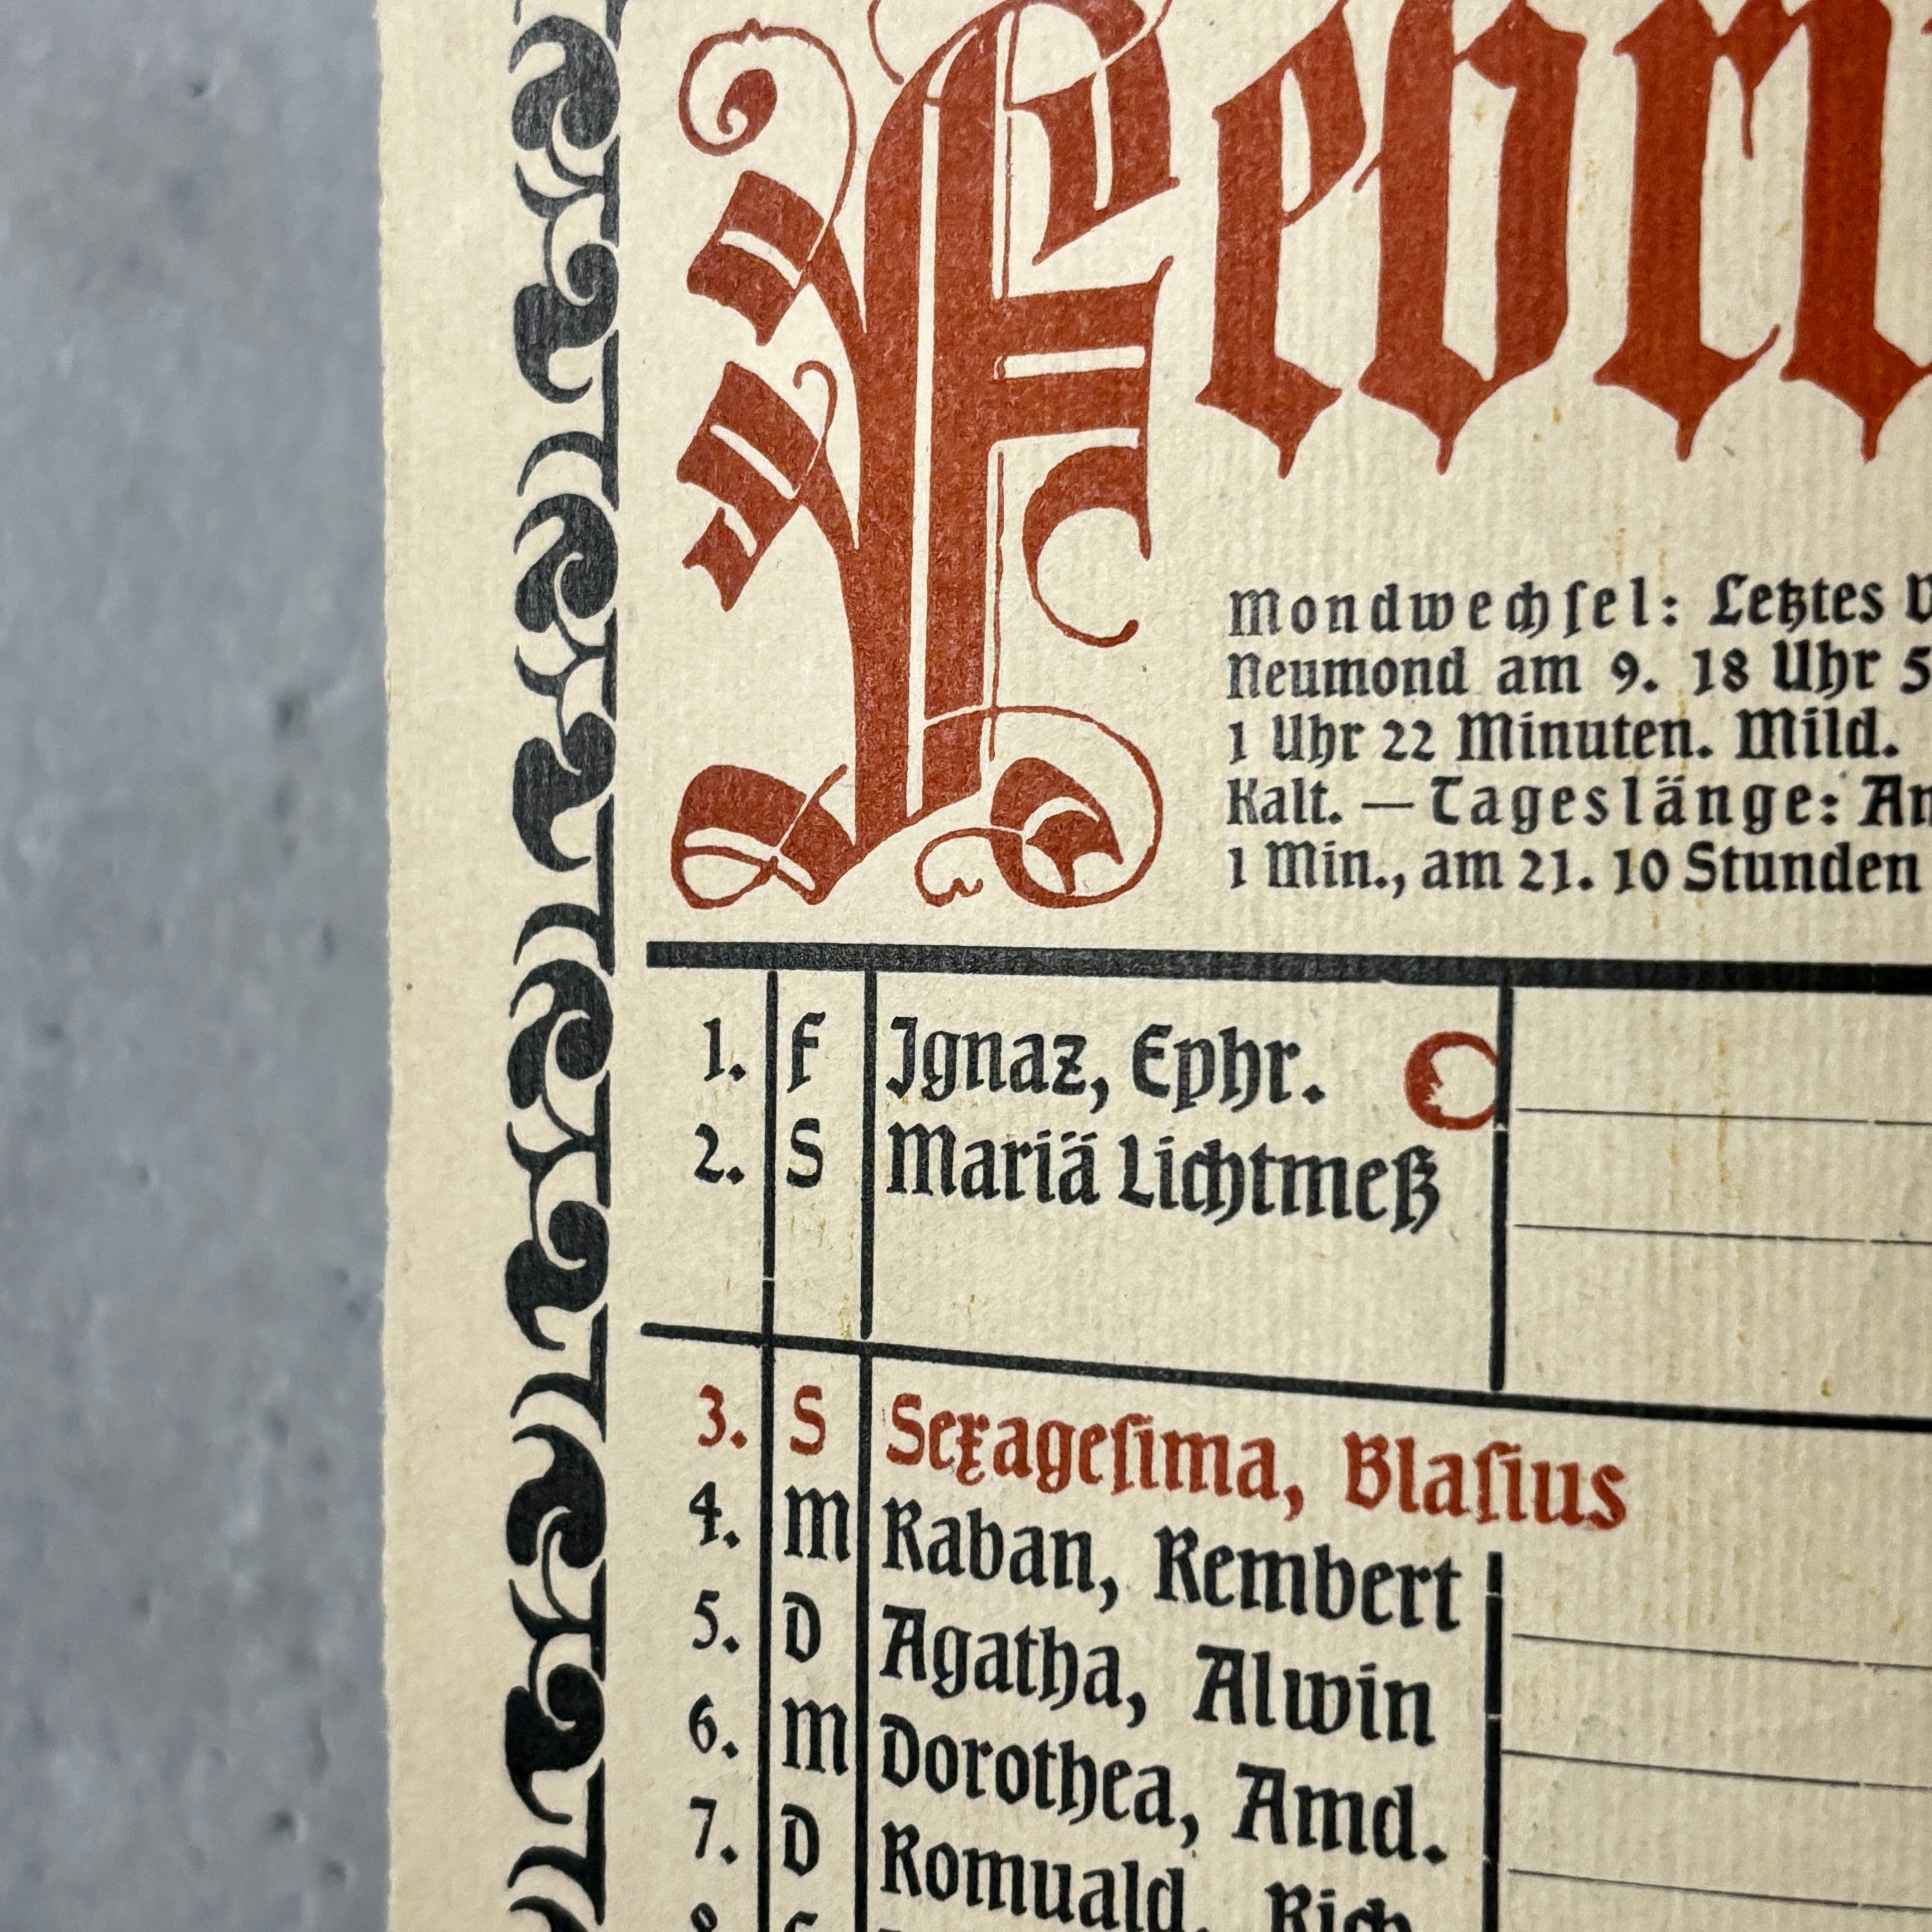 Febru
Mondwechsel: Letztes
Neumond am 9. 18 Uhr 5
1 Uhr 22 Minuten. Mild.
Kalt. — Tageslänge: Am
1 Min., am 21. 10 Stunden
1. F Ignaz, Ephr.
2. S Mariä Lichtmeß
3. S Sexagesima, Blasius
4. M Raban, Rembert
5. D Agatha, Alwin
6. M Dorothea, Amd.
7. D Romuald, Rich.
8. S